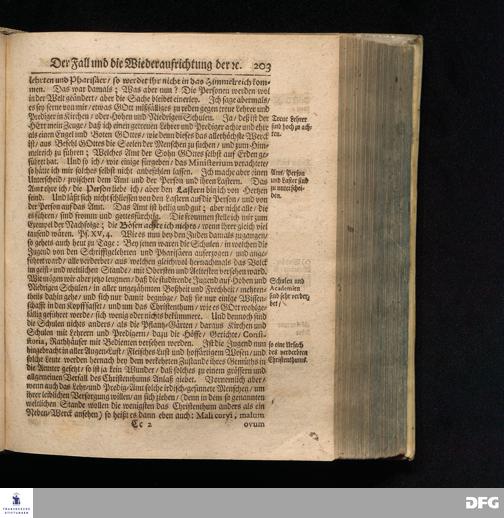 Der Fall und die Wiederaufrichtung der ꝛc. 203
lehrten und Phariſäer/ ſo werdet ihr nicht in das Himmelreich kom-
men. Das war damals; Was aber nun? Die Perſonen werden wol
in der Welt geändert/ aber die Sache bleibet einerley. Ich ſage abermals/
es ſey ferne von mir/ etwas GOtt mißfälliges zu reden gegen treue Lehrer und
Prediger in Kirchen/ oder Hohen und Niedrigen Schulen. Ja/ deß iſt der
HErr mein Zeuge/ daß ich einen getreuen Lehrer und Prediger achte und ehre
als einen Engel und Boten GOttes/ wie denn dieſes das allerhöchſte Werck
iſt/ aus Befehl GOttes die Seelen der Menſchen zu ſuchen/ und zum Him-
melreich zu führen; Welches Amt der Sohn GOttes ſelbſt auf Erden ge-
führet hat. Und ſo ich/ wie einige fürgeben/ das Miniſterium verachtete/
ſo hätte ich mir ſolches ſelbſt nicht anbefehlen laſſen. Ich mache aber einen
Unterſcheid/ zwiſchen dem Amt und der Perſon und ihren Laſtern. Das
Amt ehre ich/ die Perſon liebe ich/ aber den Laſtern bin ich von Hertzen
feind. Und läßt ſich nicht ſchlieſſen von den Laſtern auf die Perſon/ und von
der Perſon auf das Amt. Das Amt iſt heilig und gut; aber nicht alle/ die
es führen/ ſind fromm und gottesfürchtig. Die frommen ſtelle ich mir zum
Exempel der Nachfolge; die Böſen achte ich nichts/ wenn ihrer gleich viel
tauſend wären. Pſ. XV, 4. Wie es nun bey den Juden damals zugangen/
ſo gehets auch heut zu Tage: Bey jenen waren die Schulen/ in welchen die
Jugend von den Schrifftgelehrten und Phariſäern auferzogen/ und ange-
führet ward/ alle verderbet/ aus welchen gleichwol hernachmals das Volck
im geiſt- und weltlichen Stande/ mit Oberſten und Aelteſten verſehen ward.
Wie mögen wir aber jetzo leugnen/ daß die ſtudirende Jugend auf Hohen und
Niedrigen Schulen/ in aller ungezähmten Boßheit und Frechheit/ mehren-
theils dahin gehe/ und ſich nur damit begnüge/ daß ſie nur einige Wiſſen-
ſchafft in den Kopff faſſe/ und um das Chriſtenthum/ wie es GOtt wohlge-
fällig geführet werde/ ſich wenig oder nichts bekümmere. Und dennoch ſind
die Schulen nichts anders/ als die Pflantz-Gärten/ daraus Kirchen und
Schulen mit Lehrern und Predigern/ dazu die Höffe/ Gerichte/ Conſi-
ſtoria, Rathhäuſer mit Bedienten verſehen werden. Iſt die Jugend nun
hingebracht in aller Augen-Luſt/ Fleiſches-Luſt und hoffärtigem Weſen/ und
ſolche Leute werden hernach bey dem verkehrten Zuſtande ihres Gemüths in
die Aemter geſetzt/ ſo iſt ja kein Wunder/ daß ſolches zu einem gröſſern und
allgemeinen Verfall des Chriſtenthums Anlaß giebet. Vornemlich aber/
wenn auch das Lehr- und Predig-Amt ſolche irdiſch-geſinnete Menſchen/ um
ihrer leiblichen Verſorgung willen/ an ſich ziehen/ (denn in dem ſo genannten
weltlichen Stande wollen die wenigſten das Chriſtenthum anders als ein
Neben-Werck anſehen) ſo heißt es dann eben auch: Mali corvi, malum
Cc 2 ovum
Treue Lehrer
ſind hoch zu ach-
ten.
Amt/ Perſon
und Laſter ſind
zu unterſchei-
den.
Schulen und
Academien
ſind ſehr verder-
bet/
ſo eine Urſach
des verderbten
Chriſtenthums.
FRANCKESCHE
STIFTUNGEN
DFG